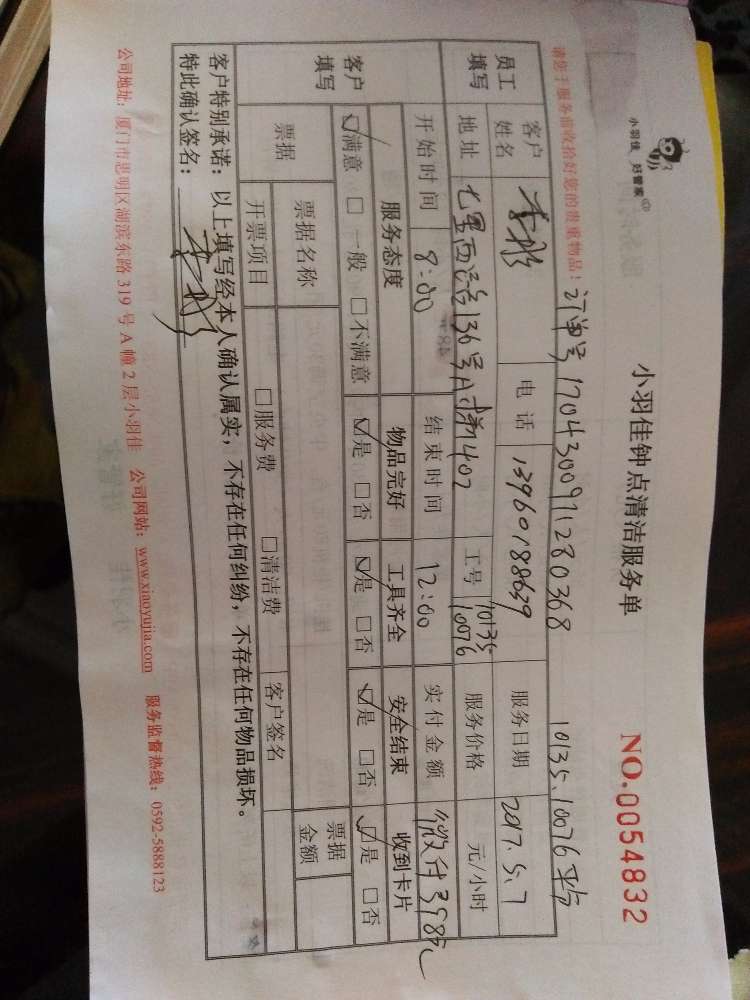 小羽佳 好管家
小羽佳钟点清洁服务单
NO.0054832
请您于服务前收拾好您的贵重物品！
订单号 170430091280368
10135.10076
员工填写
客户姓名
电话 13960188639
服务日期 2017.5.7
地址
136号A梯1402
工号 10135 10076
服务价格 元/小时
开始时间 8:00
结束时间 12:00
实付金额 微付398元
客户填写
服务态度 物品完好 工具齐全 安全结束 收到卡片
☑满意 □一般 □不满意 ☑是 □否 ☑是 □否 ☑是 □否 ☑是 □否
票据
票据名称
票据金额
开票项目 □服务费 □清洁费 客户签名
客户特别承诺：以上填写经本人确认属实，不存在任何纠纷，不存在任何物品损坏。
特此确认签名：
公司地址：厦门市思明区湖滨东路319号A幢2层小羽佳 公司网站：www.xiaoyujia.com 服务监督热线：0592-5888123